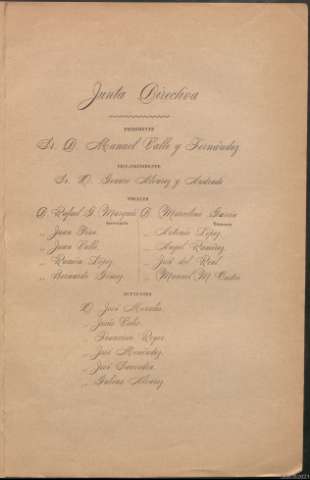 Junta Directiva
PRESIDENTE
Sr. D. Manuel Valle y Fernández.
VICE-PRESIDENTE
Sr. D. Genaro Alvarez y Andrade
VOCALES
D. Rafael G. Marqués D. Marcelino García
Secretario Tesorero
„ Juan „ Antonio López.
„ Juan „ Angel Ramírez.
„ Ramón López. „ José del Real.
„ Bernardo Gómez. „ Manuel M. Castro
SUPLENTES
D. José Morales.
„ Jesús
„ Francisco Reyes.
„ José Menéndez.
„ José
„ Alvarez